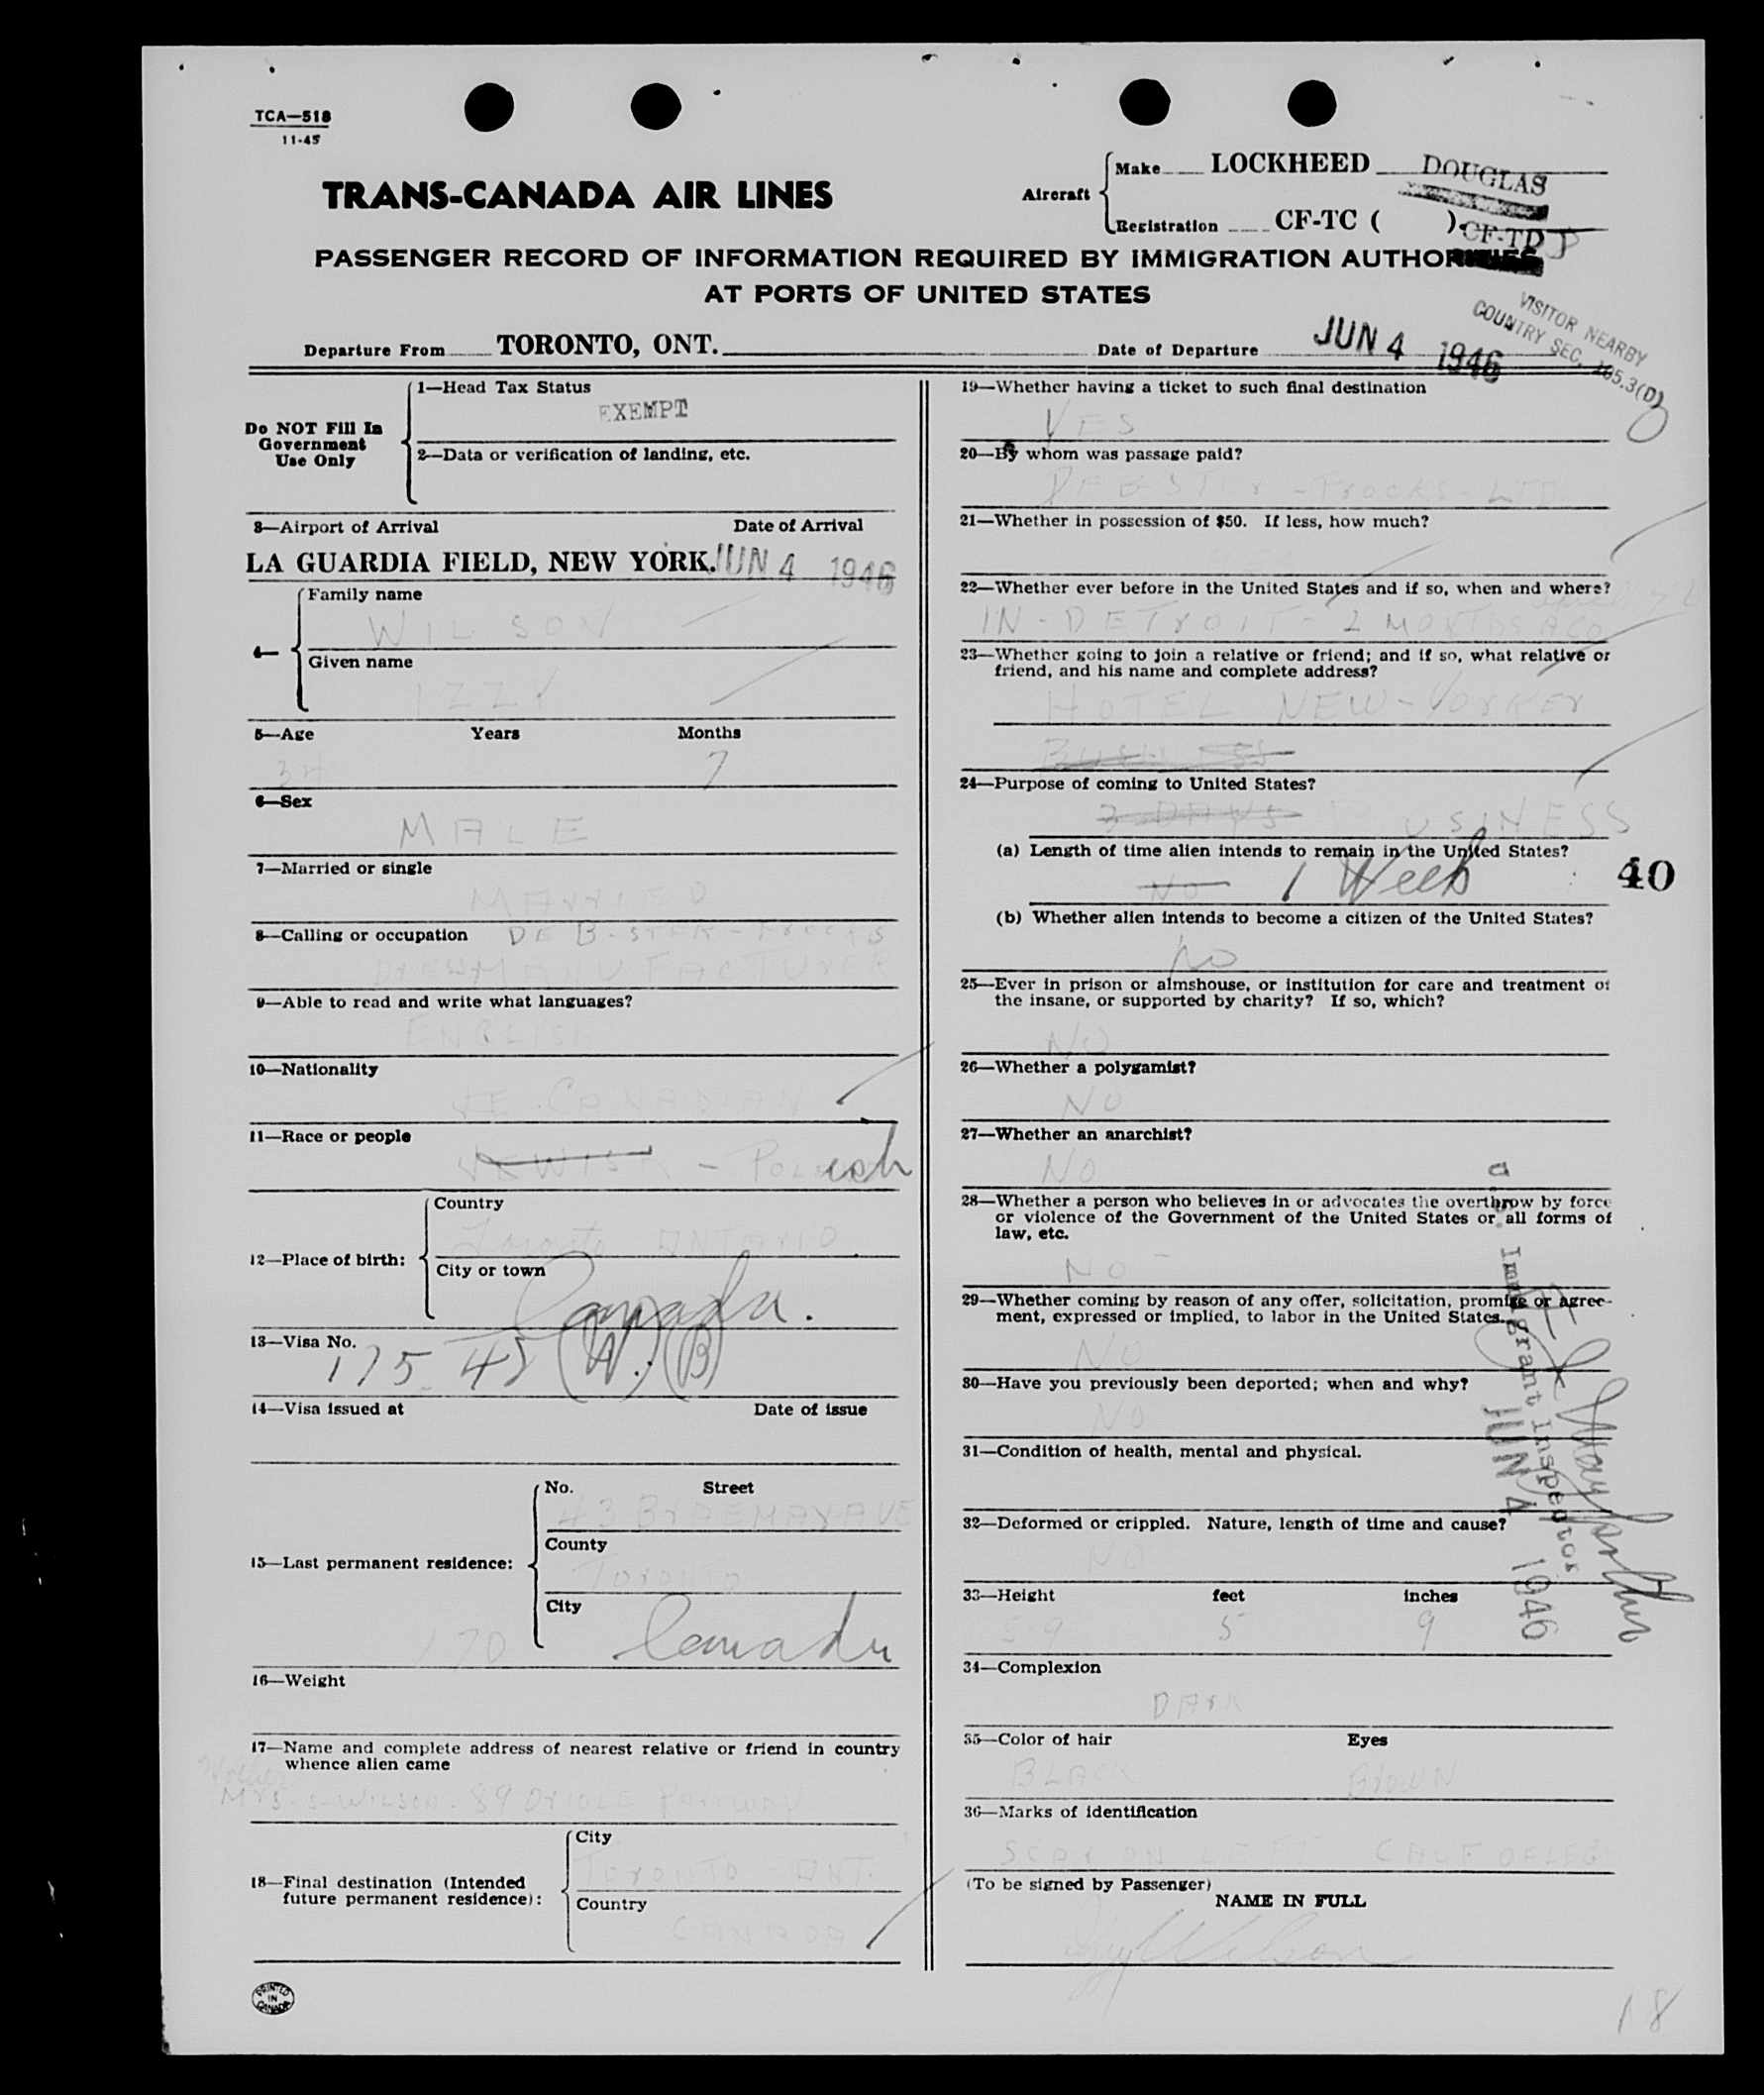 TCA—518
11-45
TRANS-CANADA AIR LINES
Aircraft
Make LOCKHEED DOUGLAS
Registration CF-TC ( ) CF-TD
PASSENGER RECORD OF INFORMATION REQUIRED BY IMMIGRATION
AT PORTS OF UNITED STATES
VISITOR NEARBY
COUNTRY SEC.
Departure From TORONTO, ONT. Date of Departure JUN 4 1946
Do NOT Fill In
Government
Use Only
1—Head Tax Status
EXEMPT
2—Data or verification of landing, etc.
3—Airport of Arrival Date of Arrival
LA GUARDIA FIELD, NEW YORK. JUN 4 1946
4—
Family name
WILSON
Given name
IZZY
5—Age Years Months
7
6—Sex
MALE
7—Married or single
MARRIED
8—Calling or occupation
MANUFACTURER
9—Able to read and write what languages?
ENGLISH
10—Nationality
CANADIAN
11—Race or people
JEWISH – Polish
12—Place of birth:
Country
Toronto ONTARIO
City or town
Canada.
13—Visa No.
175.45 (A).(B)
14—Visa issued at Date of issue
15—Last permanent residence:
No. Street
43 BRAEMAR AVE
County
TORONTO
City
Canada
170
16—Weight
17—Name and complete address of nearest relative or friend in country
whence alien came
Mother
Mrs. S. WILSON. 89 ORIOLE PARKWAY
18—Final destination (Intended
future permanent residence):
City
TORONTO ONT.
Country
CANADA
PRINTED
IN
CANADA
19—Whether having a ticket to such final destination
YES
20—By whom was passage paid?
FROCKS - LTD
21—Whether in possession of $50. If less, how much?
22—Whether ever before in the United States and if so, when and where?
IN - DETROIT - 2 MONTHS AGO
23—Whether going to join a relative or friend; and if so, what relative or
friend, and his name and complete address?
HOTEL NEW-YORKER
BUSINESS
24—Purpose of coming to United States?
3 DAYS BUSINESS
(a) Length of time alien intends to remain in the United States?
NO 1 Week
40
(b) Whether alien intends to become a citizen of the United States?
NO
25—Ever in prison or almshouse, or institution for care and treatment of
the insane, or supported by charity? If so, which?
NO
26—Whether a polygamist?
NO
27—Whether an anarchist?
NO
28—Whether a person who believes in or advocates the overthrow by force
or violence of the Government of the United States or all forms of
law, etc.
NO
29—Whether coming by reason of any offer, solicitation, promise or agree-
ment, expressed or implied, to labor in the United States.
NO
30—Have you previously been deported; when and why?
NO
31—Condition of health, mental and physical.
32—Deformed or crippled. Nature, length of time and cause?
NO
33—Height feet inches
5 9 5 9
U.S. Immigrant Inspector
JUN 4 1946
34—Complexion
DARK
35—Color of hair Eyes
BLACK BROWN
36—Marks of identification
SCAR ON LEFT CALF OF LEG
(To be signed by Passenger)
NAME IN FULL
Izzy Wilson
18